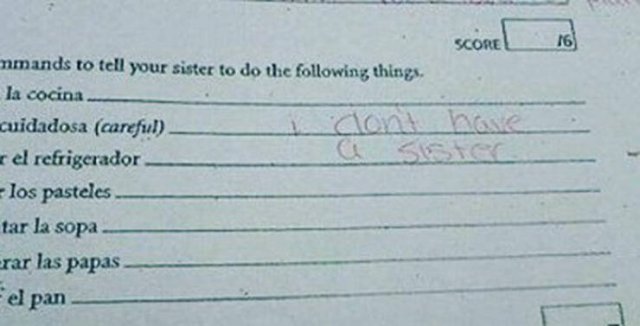 SCORE /6
mmands to tell your sister to do the following things.
la cocina
cuidadosa (careful) i don't have
r el refrigerador a sister
r los pasteles
tar la sopa
rar las papas
el pan